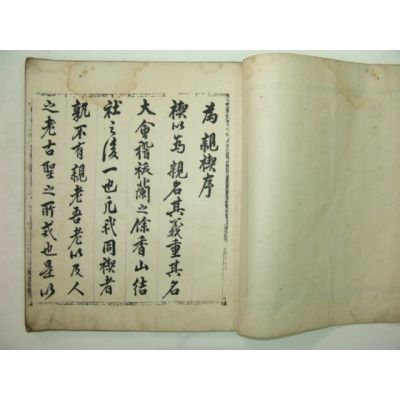 為親楔序
楔以為親名其義重其名
大會稽祓蘭之餘香山結
社之後一也凡我同楔者
孰不有親老吾老以及人
之老古聖之所戒也是以